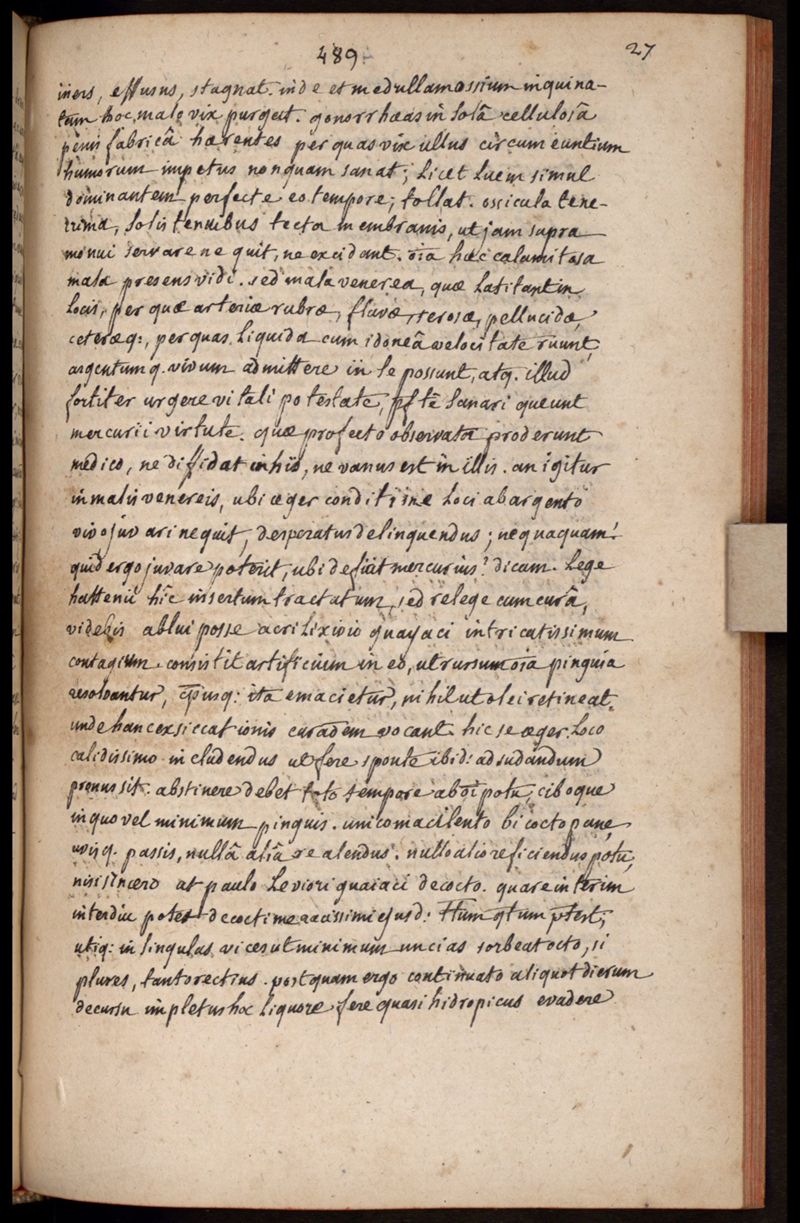 489
27
iners, effusus, stagnat. inde et medullam ossium inquina-
tam hoc malo vix purgat. gonorrhæas in solâ cellulosâ
penis fabricâ hærentes per quas vix ullus circum euntium
humorum impetus nonquam sanat; licet luem simul
dominantem perfecte eo tempore, tollat. ossicula tene-
rrima, solis tenuibus tecta membranis, ut jam supra
monui servare ne quit, ne excidant. oīa hæc calamitosa
mala presens vidi. sed mala venerea, quæ latitant in
locis, per quæ arteriæ rubræ, flavæ, serosæ, pellucidæ,
ceteræq:, per quas liquida cum idoneâ velocitate ruunt,
argentum q. vivum admittere in se possunt, atq. illud
fortiter urgere vitali potestate, pſtē sanari queunt
mercurii virtute. quæ profecto observata proderunt
medico, ne diffidat in his, ne vanus est in illis. an igitur
in malis venereis, ubi æger conditione loci ab argento
vivo juvari nequit, desperatus delinquendus; nequaquam!
quid ergo juvare poterit, ubi deficit mercurius? dicam. lege
huttenii hîc insertum tractatum, sed relege cum curâ,
videbis ablui posse acri lixivio guayaci intricatissimum
contagium. consistit artificium in eo, ut rursum oīa pinguia
resolvantur, c̄pusq: ita emacietur, nihil ut olei retineat.
unde hanc exsiccationis curam eādem vocant. hic se æger loco
calidissimo includendus ut fere sponte ibid: ad sudandum
pronus sit. abstinere debet toto tempore ab oī potu, ciboque
in quo vel minimum pinguis. unico macilento bicocto pane,
uvisq. passis, nullâ aliâ re alendus. nullo alio reficiendus potu,
nisi sincero at paulo leviori guaiaci decocto. quare interim
interdiu potet decocti meracissimi ejusd: tum qtum ptest;
utiq: in singulas vices ut minimum uncias sorbeat octo, si
plures, tanto rectius. postquam ergo continuato aliquot dierum
decursu impletus hoc liquore fere quasi hidropicus evadere